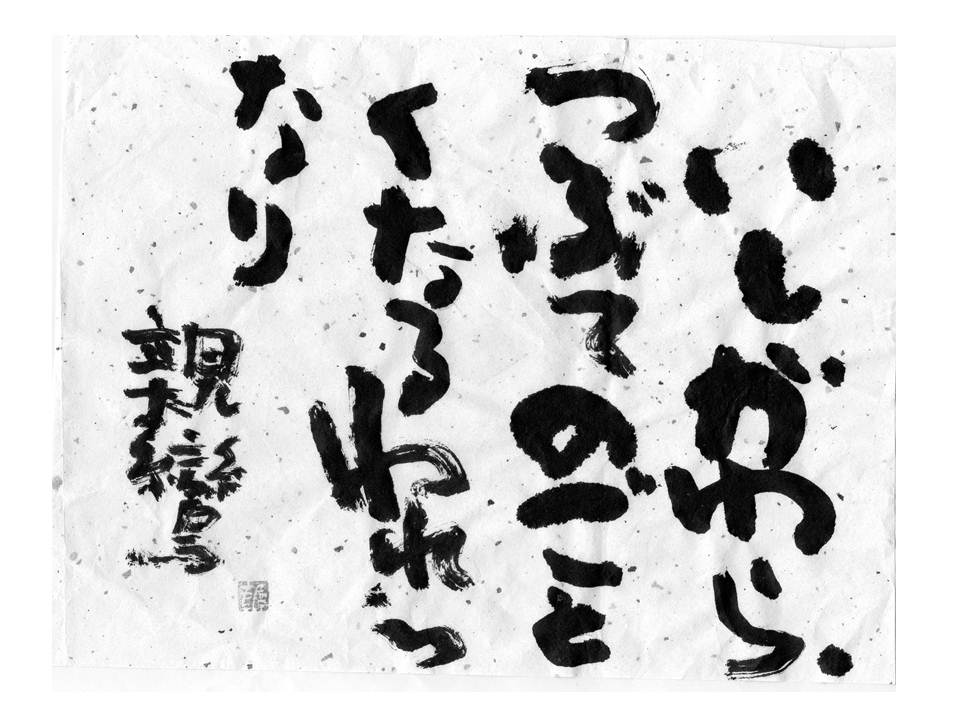 いしがわら、
つぶてのごと
くなるわれら
なり
親鸞